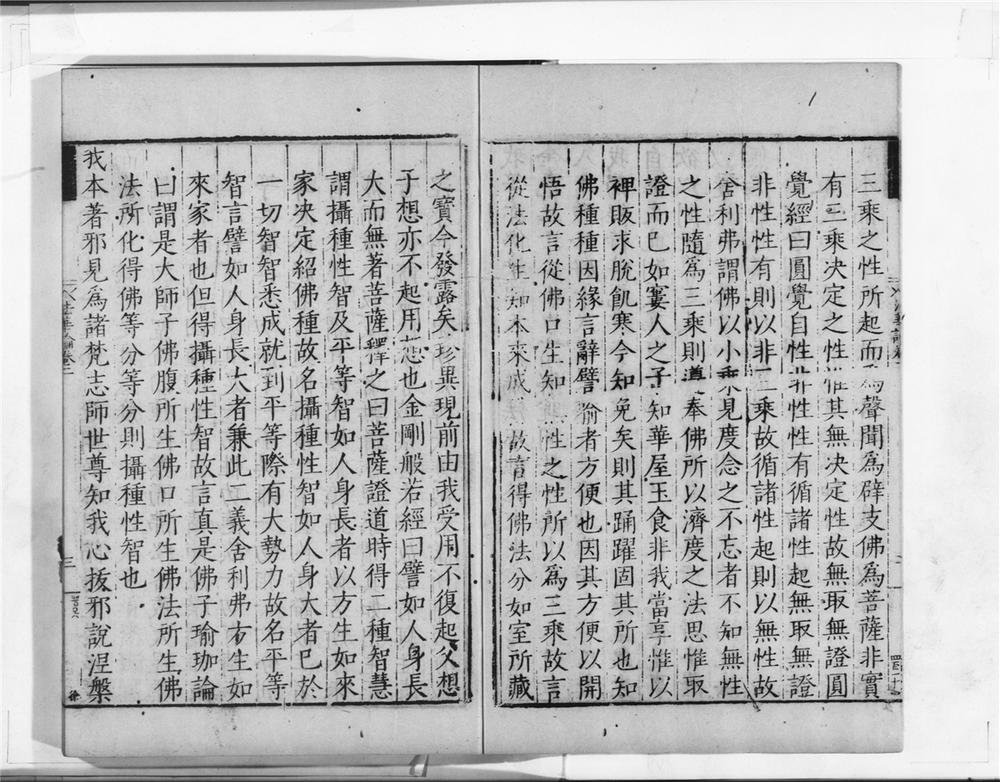 三乘之性所起而爲聲聞爲辟支佛爲菩薩非實
有三乘决定之性惟其無决定性故無取無證圓
覺經曰圓覺自性非性性有循諸性起無取無證
非性性有則以非三乘故循諸性起則以無性故
舍利弗謂佛以小乘見度念之不忘者不知無性
之性隨爲三乘則遵奉佛所以濟度之法思惟取
證而已如窶人之子知華屋玉食非我當享惟以
裨販求脫飢寒今知免矣則其踊躍固其所也知
佛種種因緣言辭譬喻者方便也因其方便以開
悟故言從佛口生知無性之性所以爲三乘故言
從法化生知本來成故言得佛法分如室所藏
之寶今發露矣珍異現前由我受用不復起父想
子想亦不起用想也金剛般若經曰譬如人身長
大而無著菩薩釋之曰菩薩證道時得二種智慧
謂攝種性智及平等智如人身長者以方生如來
家决定紹佛種故名攝種性智如人身大者已於
一切智智悉成就到平等際有大勢力故名平等
智言譬如人身長大者兼此二義舍利弗方生如
來家者也但得攝種性智故言真是佛子瑜珈論
曰謂是大師子佛腹所生佛口所生佛法所生佛
法所化得佛等分等分則攝種性智也
我本著邪見爲諸梵志師世尊知我心拔邪說涅槃
三